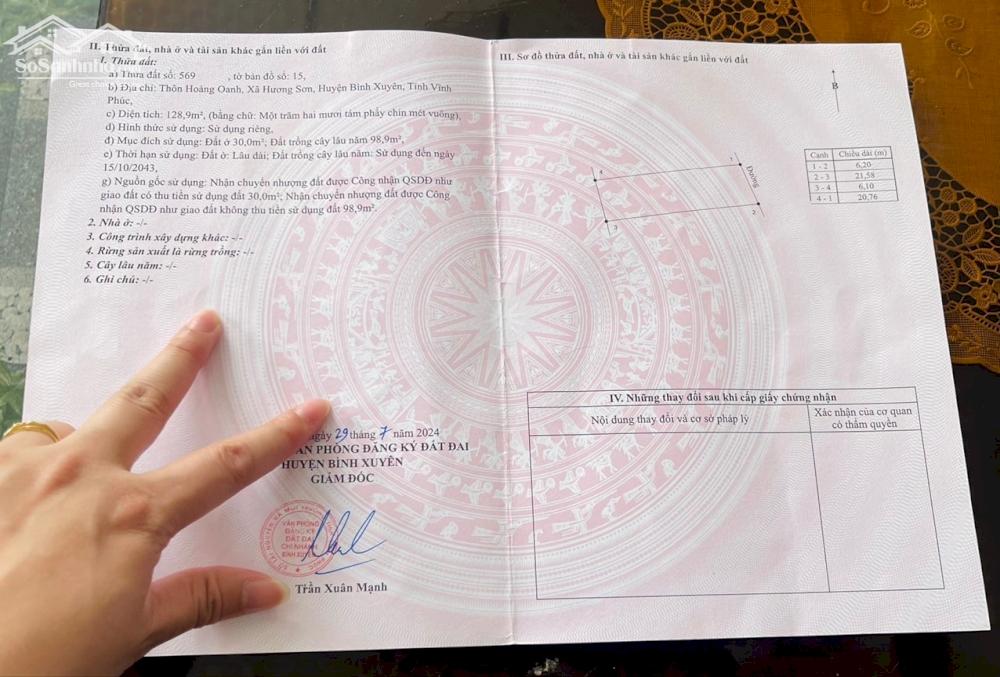 II. Thửa đất, nhà ở và tài sản khác gắn liền với đất
1. Thửa đất:
a) Thửa đất số: 569 , tờ bản đồ số: 15,
b) Địa chỉ: Thôn Hoàng Oanh, Xã Hương Sơn, Huyện Bình Xuyên, Tỉnh Vĩnh
Phúc,
c) Diện tích: 128,9m², (bằng chữ: Một trăm hai mươi tám phẩy chín mét vuông),
d) Hình thức sử dụng: Sử dụng riêng,
đ) Mục đích sử dụng: Đất ở 30,0m²; Đất trồng cây lâu năm 98,9m²,
e) Thời hạn sử dụng: Đất ở: Lâu dài; Đất trồng cây lâu năm: Sử dụng đến ngày
15/10/2043,
g) Nguồn gốc sử dụng: Nhận chuyển nhượng đất được Công nhận QSDĐ như
giao đất có thu tiền sử dụng đất 30,0m²; Nhận chuyển nhượng đất được Công
nhận QSDĐ như giao đất không thu tiền sử dụng đất 98,9m².
2. Nhà ở: -/-
3. Công trình xây dựng khác: -/-
4. Rừng sản xuất là rừng trồng: -/-
5. Cây lâu năm: -/-
6. Ghi chú: -/-
ngày 29 tháng 7 năm 2024
VĂN PHÒNG ĐĂNG KÝ ĐẤT ĐAI
HUYỆN BÌNH XUYÊN
GIÁM ĐỐC
VĂN PHÒNG
ĐĂNG KÝ
ĐẤT ĐAI
CHI NHÁNH
BÌNH XUYÊN
Trần Xuân Mạnh
III. Sơ đồ thửa đất, nhà ở và tài sản khác gắn liền với đất
B
1
4
Đường
2
3
Cạnh Chiều dài (m)
1 - 2 6,20
2 - 3 21,58
3 - 4 6,10
4 - 1 20,76
IV. Những thay đổi sau khi cấp giấy chứng nhận
Nội dung thay đổi và cơ sở pháp lý
Xác nhận của cơ quan
có thẩm quyền